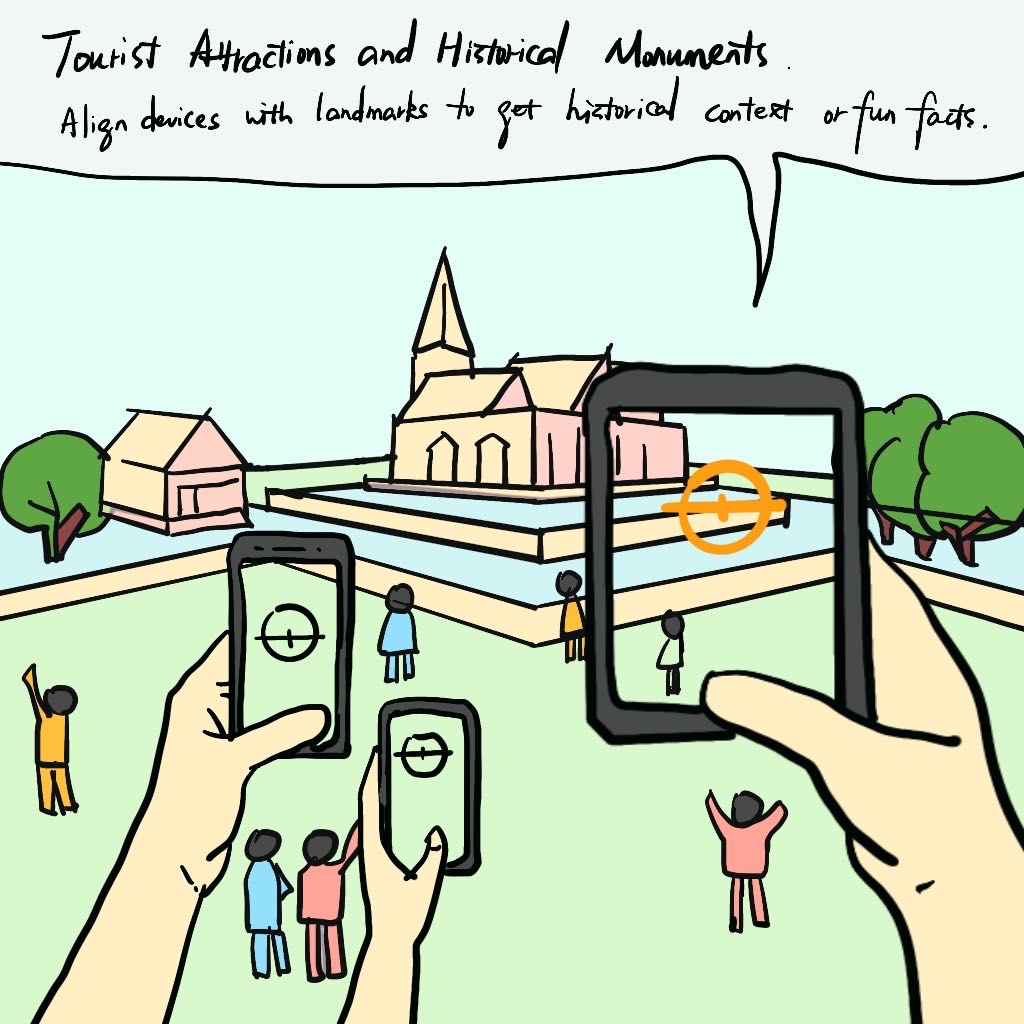 Tourist Attractions and Historical Monuments.
Align devices with landmarks to get historical context or fun facts.